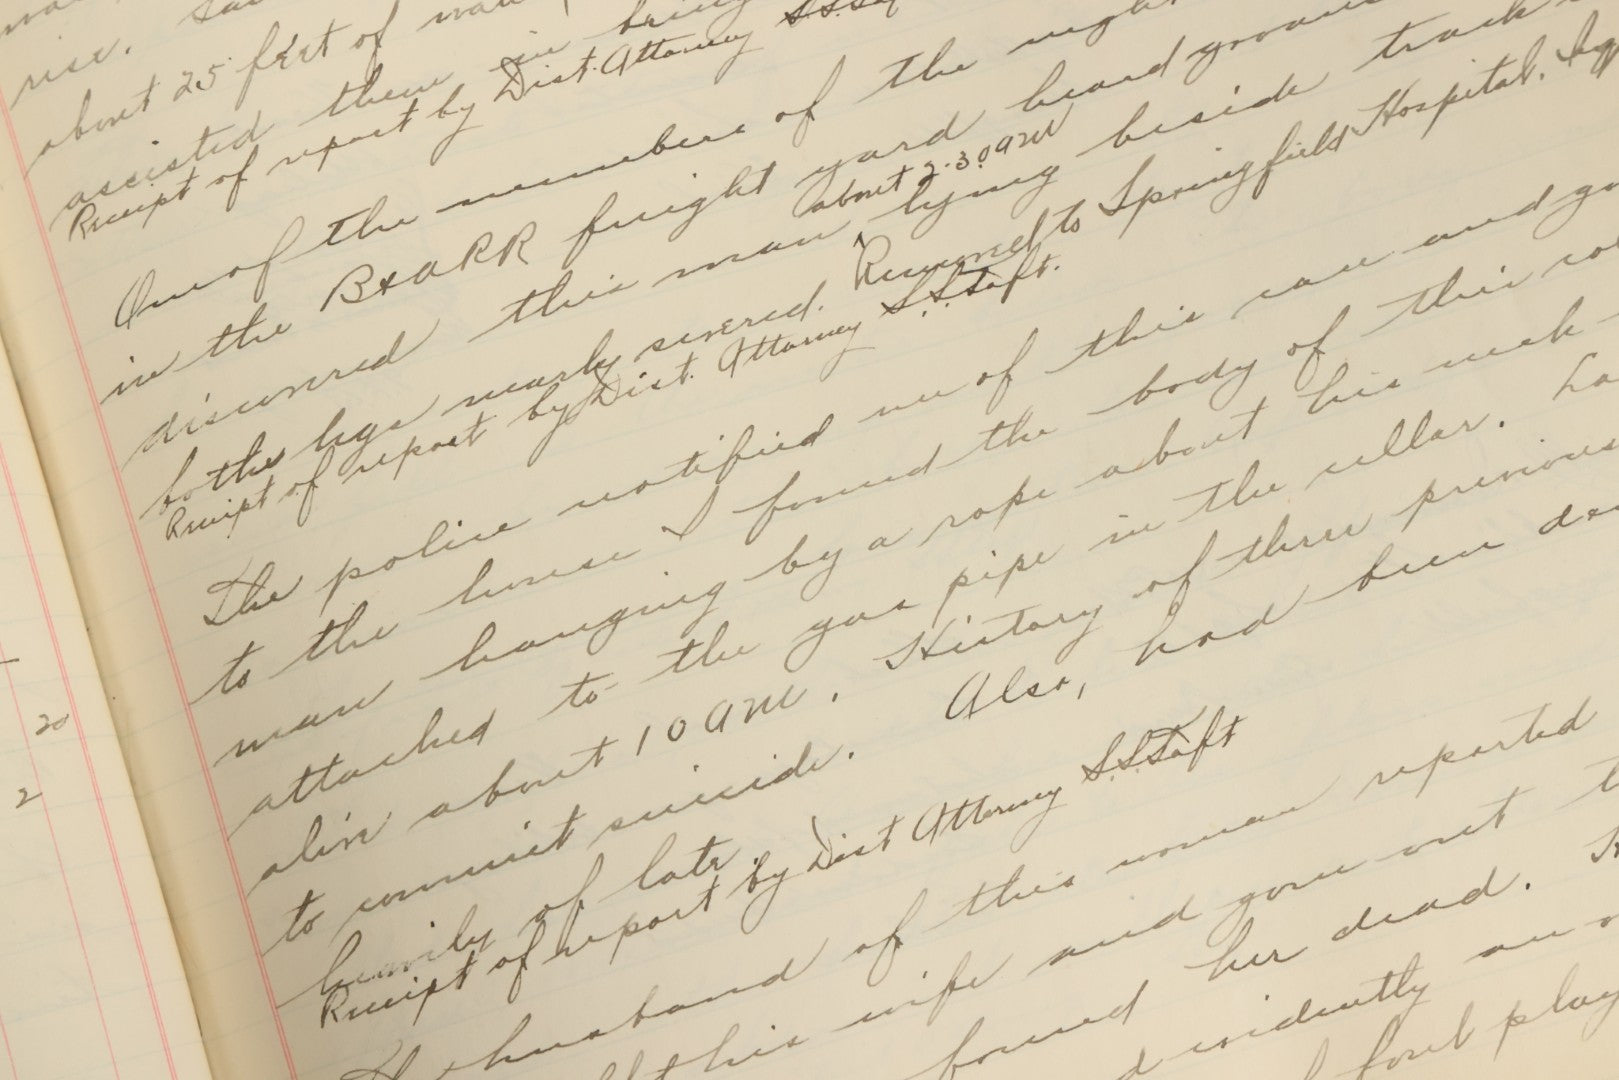 rise.
about 25 feet of
assisted them in bring
Receipt of report by Dist. Attorney S.S. Taft
One of the members of the night
in the B&ARR freight yard heard groans
about 2-30 AM
discovered this man lying beside track
both legs nearly severed. Removed to Springfield Hospital.
Receipt of report by Dist. Attorney S.S. Taft.
The police notified me of this case and
to the house I found the body of this
man hanging by a rope about his neck
attached to the gas pipe in the cellar.
alive about 10 AM. History of three previous
to commit suicide. Also, had been
heavily of late.
Receipt of report by Dist Attorney S.S. Taft
The husband of this woman reported
this wife and gone out
found her dead.
evidently an
foul play
20
2